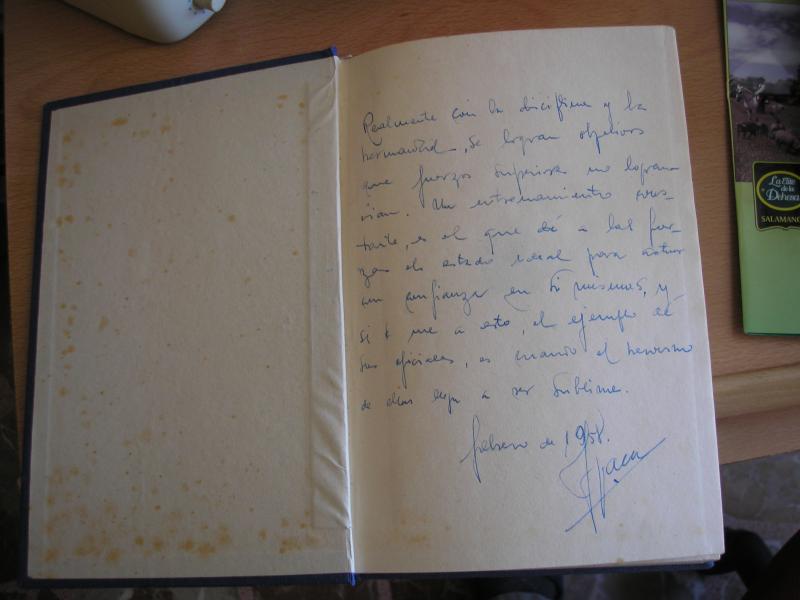 Realmente con la disciplina y la
hermandad, se logran objetivos
que fuerzas superiores no logra-
rian. Un entrenamiento cons-
tante, es el que dá a las fuer-
zas el estado ideal para actuar
con confianza en si mismos, y
si se une a esto, el ejemplo de
sus oficiales, es cuando el heroismo
de ellas llega a ser sublime.
febrero de 1958.
La Élite
de la
Dehesa
SALAMANC